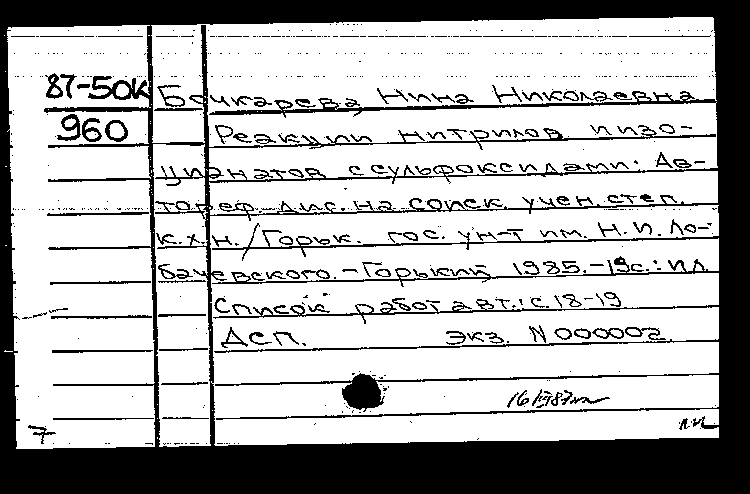 87-50К Бочкарева Нина Николаевна
960 Реакции нитрилов и изо-
цианатов с сульфоксидами: Ав-
тореф. дис. на соиск. учен. степ.
к.х.н. / Горьк. гос. ун-т им. Н. И. Ло-
бачевского. - Горький 1985. - 19с.: ил
Список работ авт.: с. 18-19
ДСП. Экз. N 000002
7